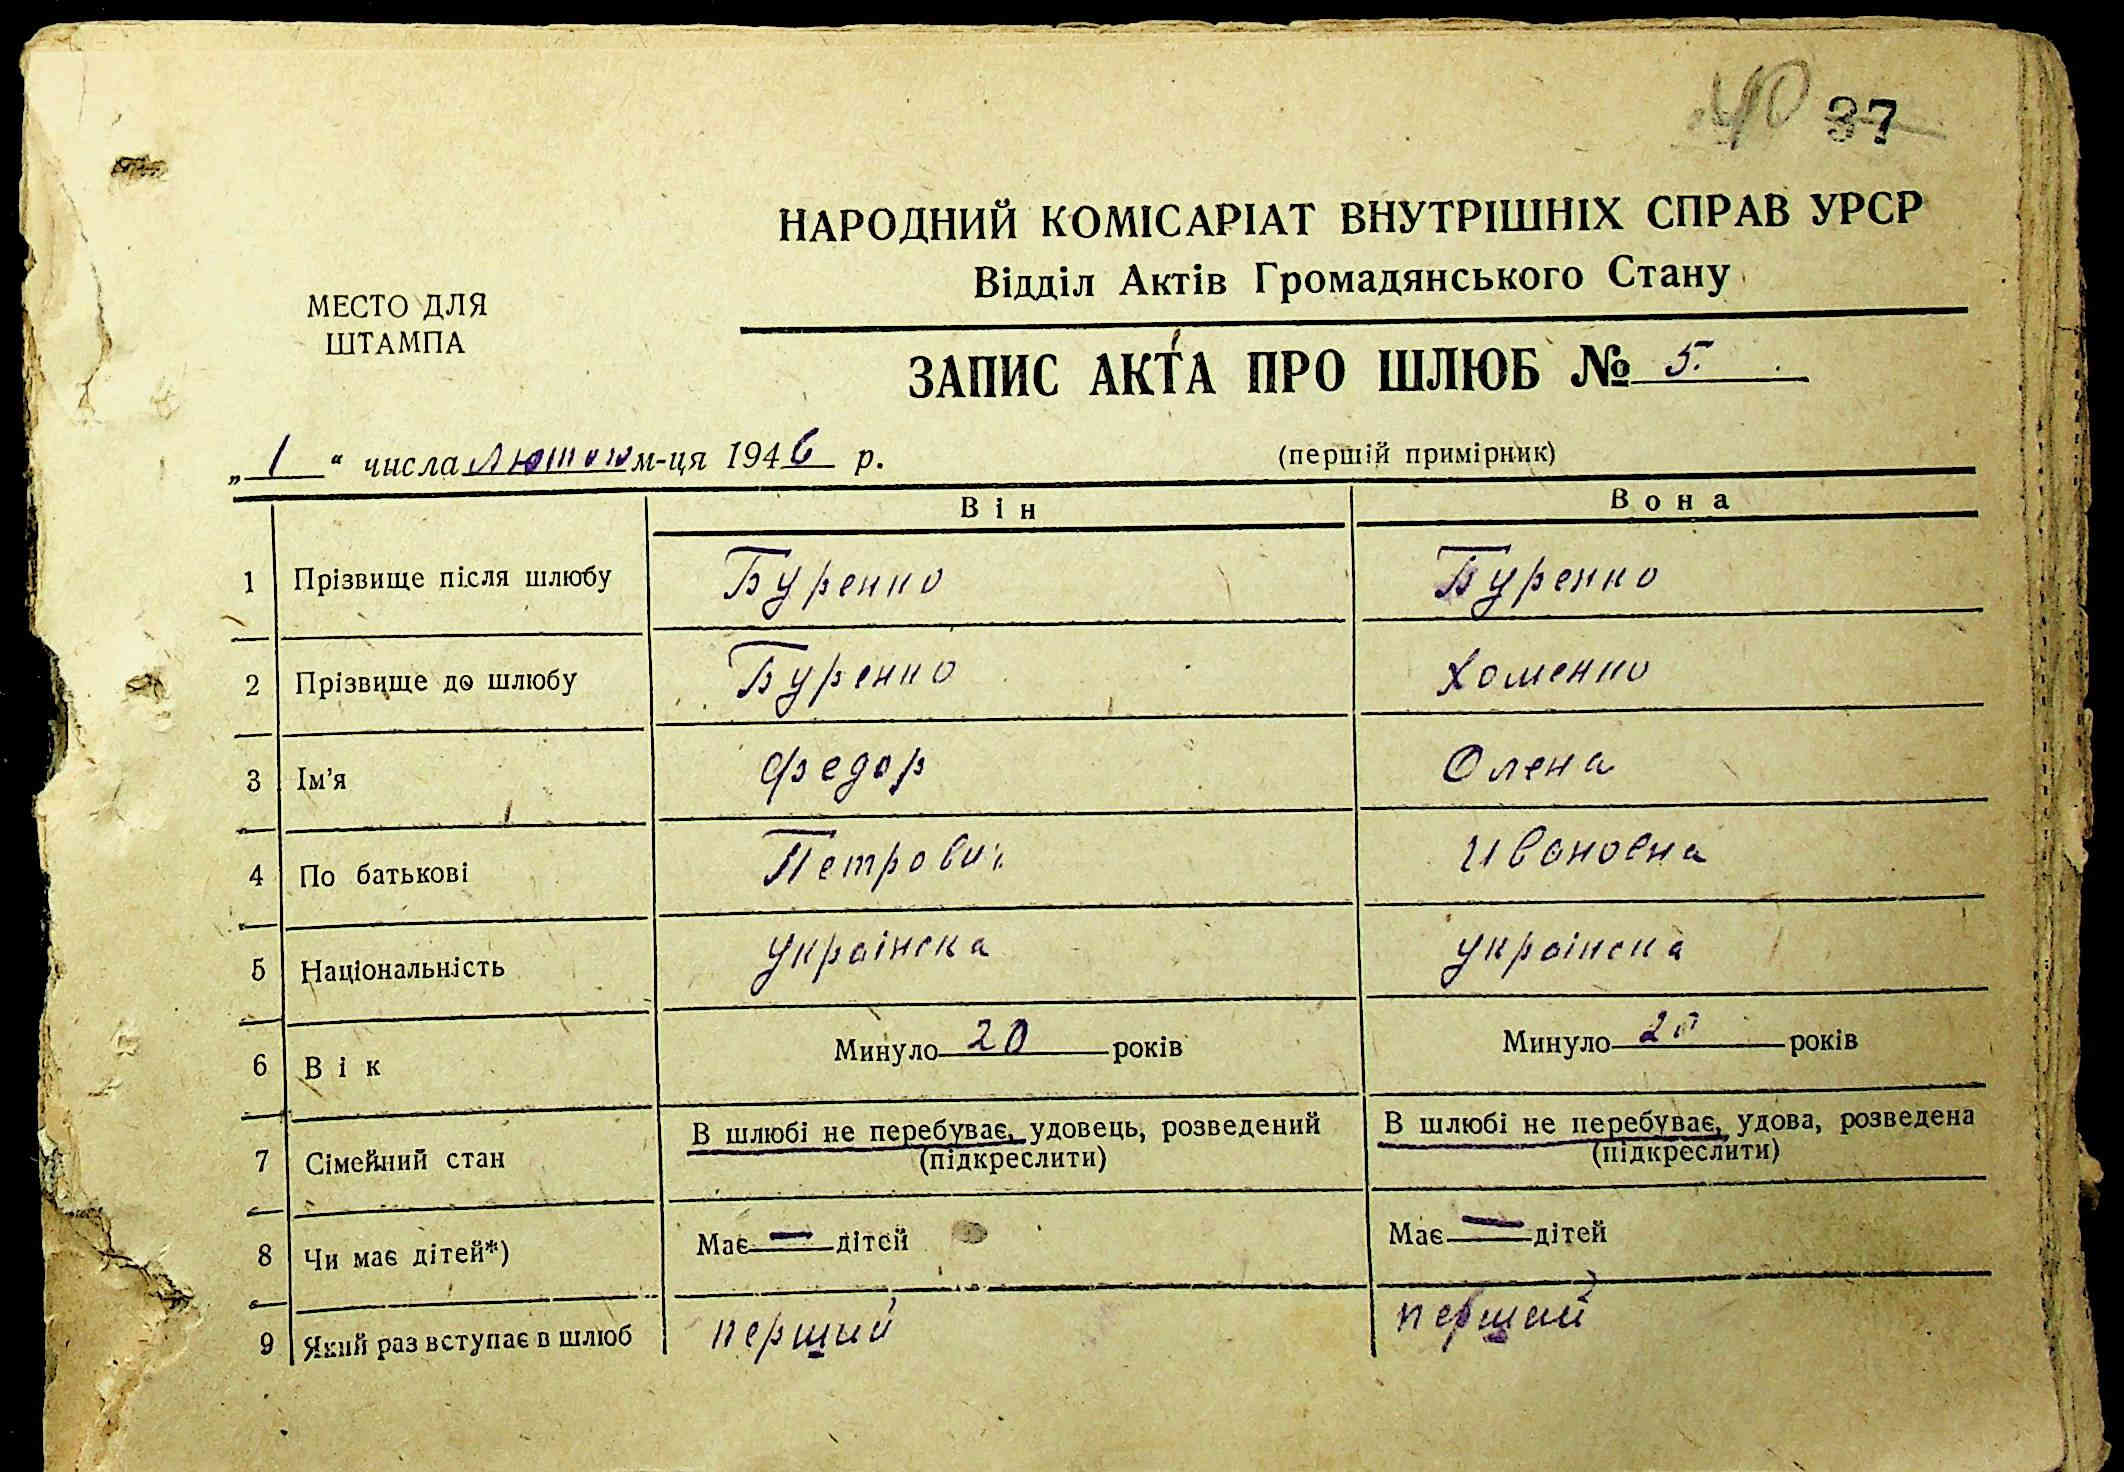 40 37
НАРОДНИЙ КОМІСАРІАТ ВНУТРІШНІХ СПРАВ УРСР
Відділ Актів Громадянського Стану
МЕСТО ДЛЯ
ШТАМПА
ЗАПИС АКТА ПРО ШЛЮБ № 5.
„ 1 “ числа лютого м-ця 1946 р.
(першій примірник)
Він Вона
1 Прізвище після шлюбу Буренко Буренко
2 Прізвище до шлюбу Буренко Хоменко
3 Ім’я Федор Олена
4 По батькові Петрович Ивановна
5 Національність Українска Українска
6 Вік Минуло 20 років Минуло 20 років
7 Сімейний стан В шлюбі не перебуває, удовець, розведений В шлюбі не перебуває, удова, розведена
(підкреслити) (підкреслити)
8 Чи має дітей*) Має — дітей Має — дітей
9 Який раз вступає в шлюб перший перший